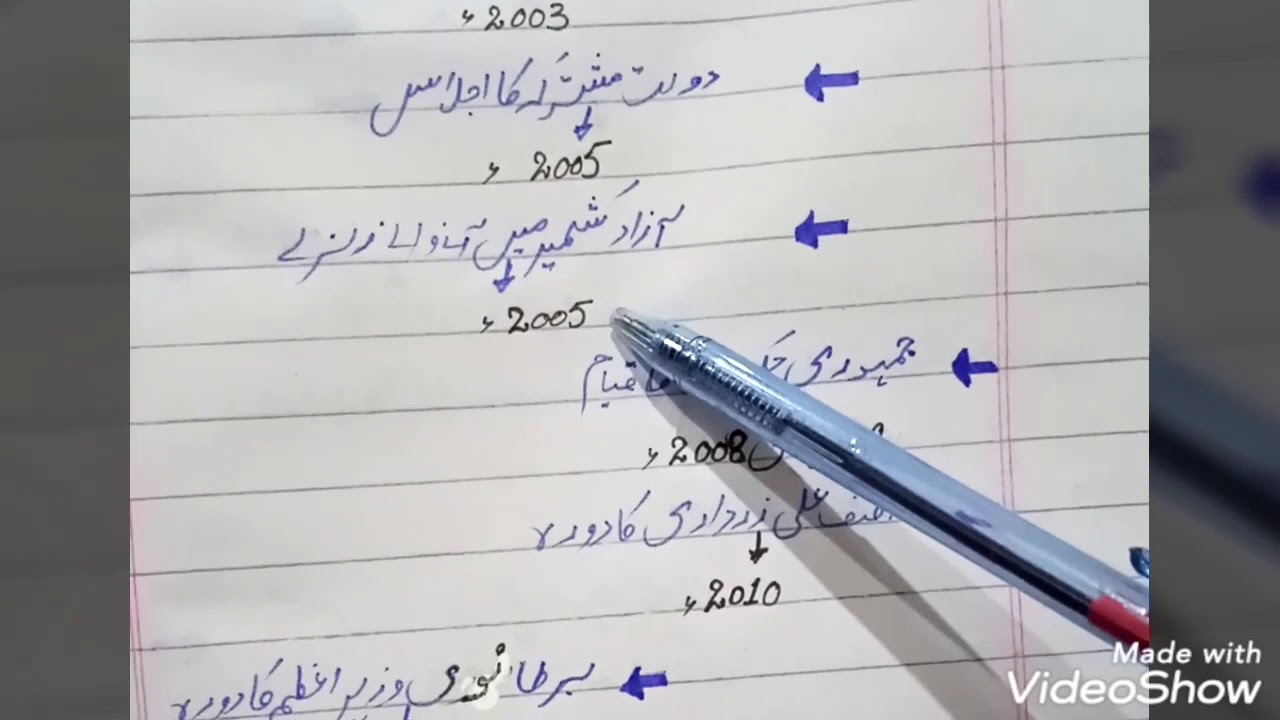 2003ء
دولت مشترکہ کا اجلاس
2005ء
آزاد کشمیر میں آنے والے زلزلے
2005ء
جمہوری قیام
2008ء
علی زرداری کا دورہ
2010ء
برطانوی وزیر اعظم کا دورہ
Made with
VideoShow